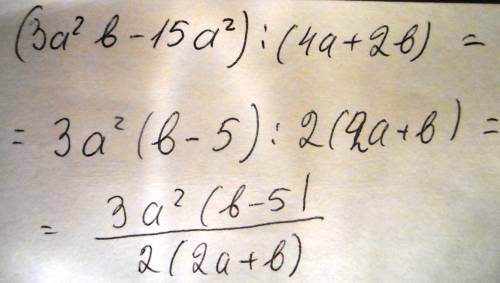 (3a² b - 15a²) : (4a + 2b) =
= 3a² (b - 5) : 2 (2a + b) =
= 3a² (b - 5)
2 (2a + b)